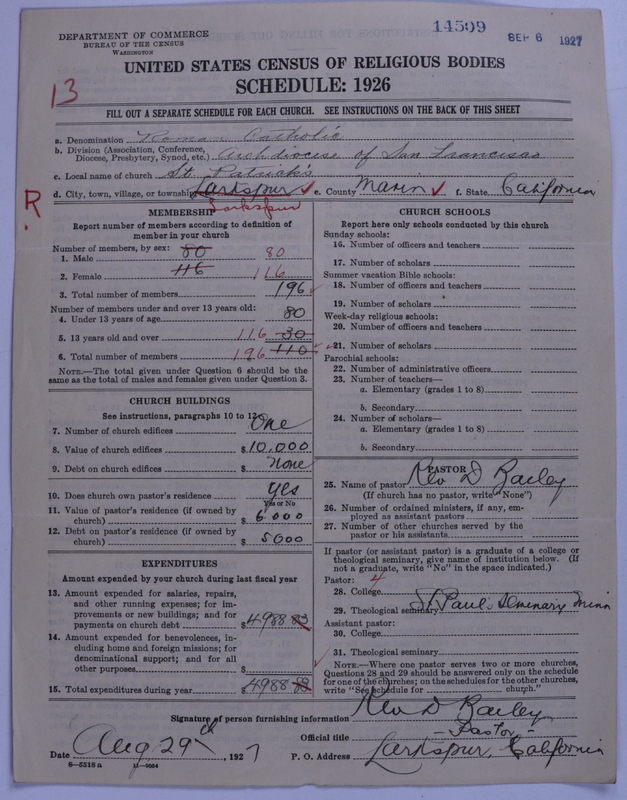 14599
SEP 6 1927
DEPARTMENT OF COMMERCE
BUREAU OF THE CENSUS
WASHINGTON
UNITED STATES CENSUS OF RELIGIOUS BODIES
SCHEDULE: 1926
13
FILL OUT A SEPARATE SCHEDULE FOR EACH CHURCH. SEE INSTRUCTIONS ON THE BACK OF THIS SHEET
a. Denomination Roman Catholic
b. Division (Association, Conference, Diocese, Presbytery, Synod, etc.) Archdiocese of San Francisco
c. Local name of church St. Patrick's
d. City, town, village, or township Larkspur ✓ e. County Marin ✓ f. State California
R.
Larkspur
MEMBERSHIP
Report number of members according to definition of
member in your church
Number of members, by sex:
1. Male 80 80
2. Female 116 116
3. Total number of members 196
Number of members under and over 13 years old:
4. Under 13 years of age 80
5. 13 years old and over 116 30
6. Total number of members 196 110
NOTE.—The total given under Question 6 should be
same as the total of males and females given under Question 3.
CHURCH BUILDINGS
See instructions, paragraphs 10 to 12
7. Number of church edifices One
8. Value of church edifices $10,000
9. Debt on church edifices $ None
10. Does church own pastor's residence yes
Yes or No
11. Value of pastor's residence (if owned by
church) $ 6000
12. Debt on pastor's residence (if owned by
church) $ 5000
EXPENDITURES
Amount expended by your church during last fiscal year
13. Amount expended for salaries, repairs,
and other running expenses; for im-
provements or new buildings; and for
payments on church debt $4988 83
14. Amount expended for benevolences, in-
cluding home and foreign missions; for
denominational support; and for all
other purposes $
15. Total expenditures during year $4988 83
CHURCH SCHOOLS
Report here only schools conducted by this church
Sunday schools:
16. Number of officers and teachers
17. Number of scholars
Summer vacation Bible schools:
18. Number of officers and teachers
19. Number of scholars
Week-day religious schools:
20. Number of officers and teachers
21. Number of scholars
Parochial schools:
22. Number of administrative officers
23. Number of teachers—
a. Elementary (grades 1 to 8)
b. Secondary
24. Number of scholars—
a. Elementary (grades 1 to 8)
b. Secondary
PASTOR
25. Name of pastor Rev D Railey
(If church has no pastor, write "None")
26. Number of ordained ministers, if any, em-
ployed as assistant pastors
27. Number of other churches served by the
pastor or his assistants
If pastor (or assistant pastor) is a graduate of a college or
theological seminary, give name of institution below. (If
not a graduate, write "No" in the space indicated.)
Pastor: 4
28. College
29. Theological seminary St. Paul Seminary Minn
Assistant pastor:
30. College
31. Theological seminary
NOTE.—Where one pastor serves two or more churches,
Questions 28 and 29 should be answered only on the schedule
for one of the churches; on the schedules for the other churches,
write "See schedule for church."
Signature of person furnishing information Rev D Railey
Official title - Pastor -
Date Aug 29th, 1927 P. O. Address Larkspur, California
8—5518 a 11—9034